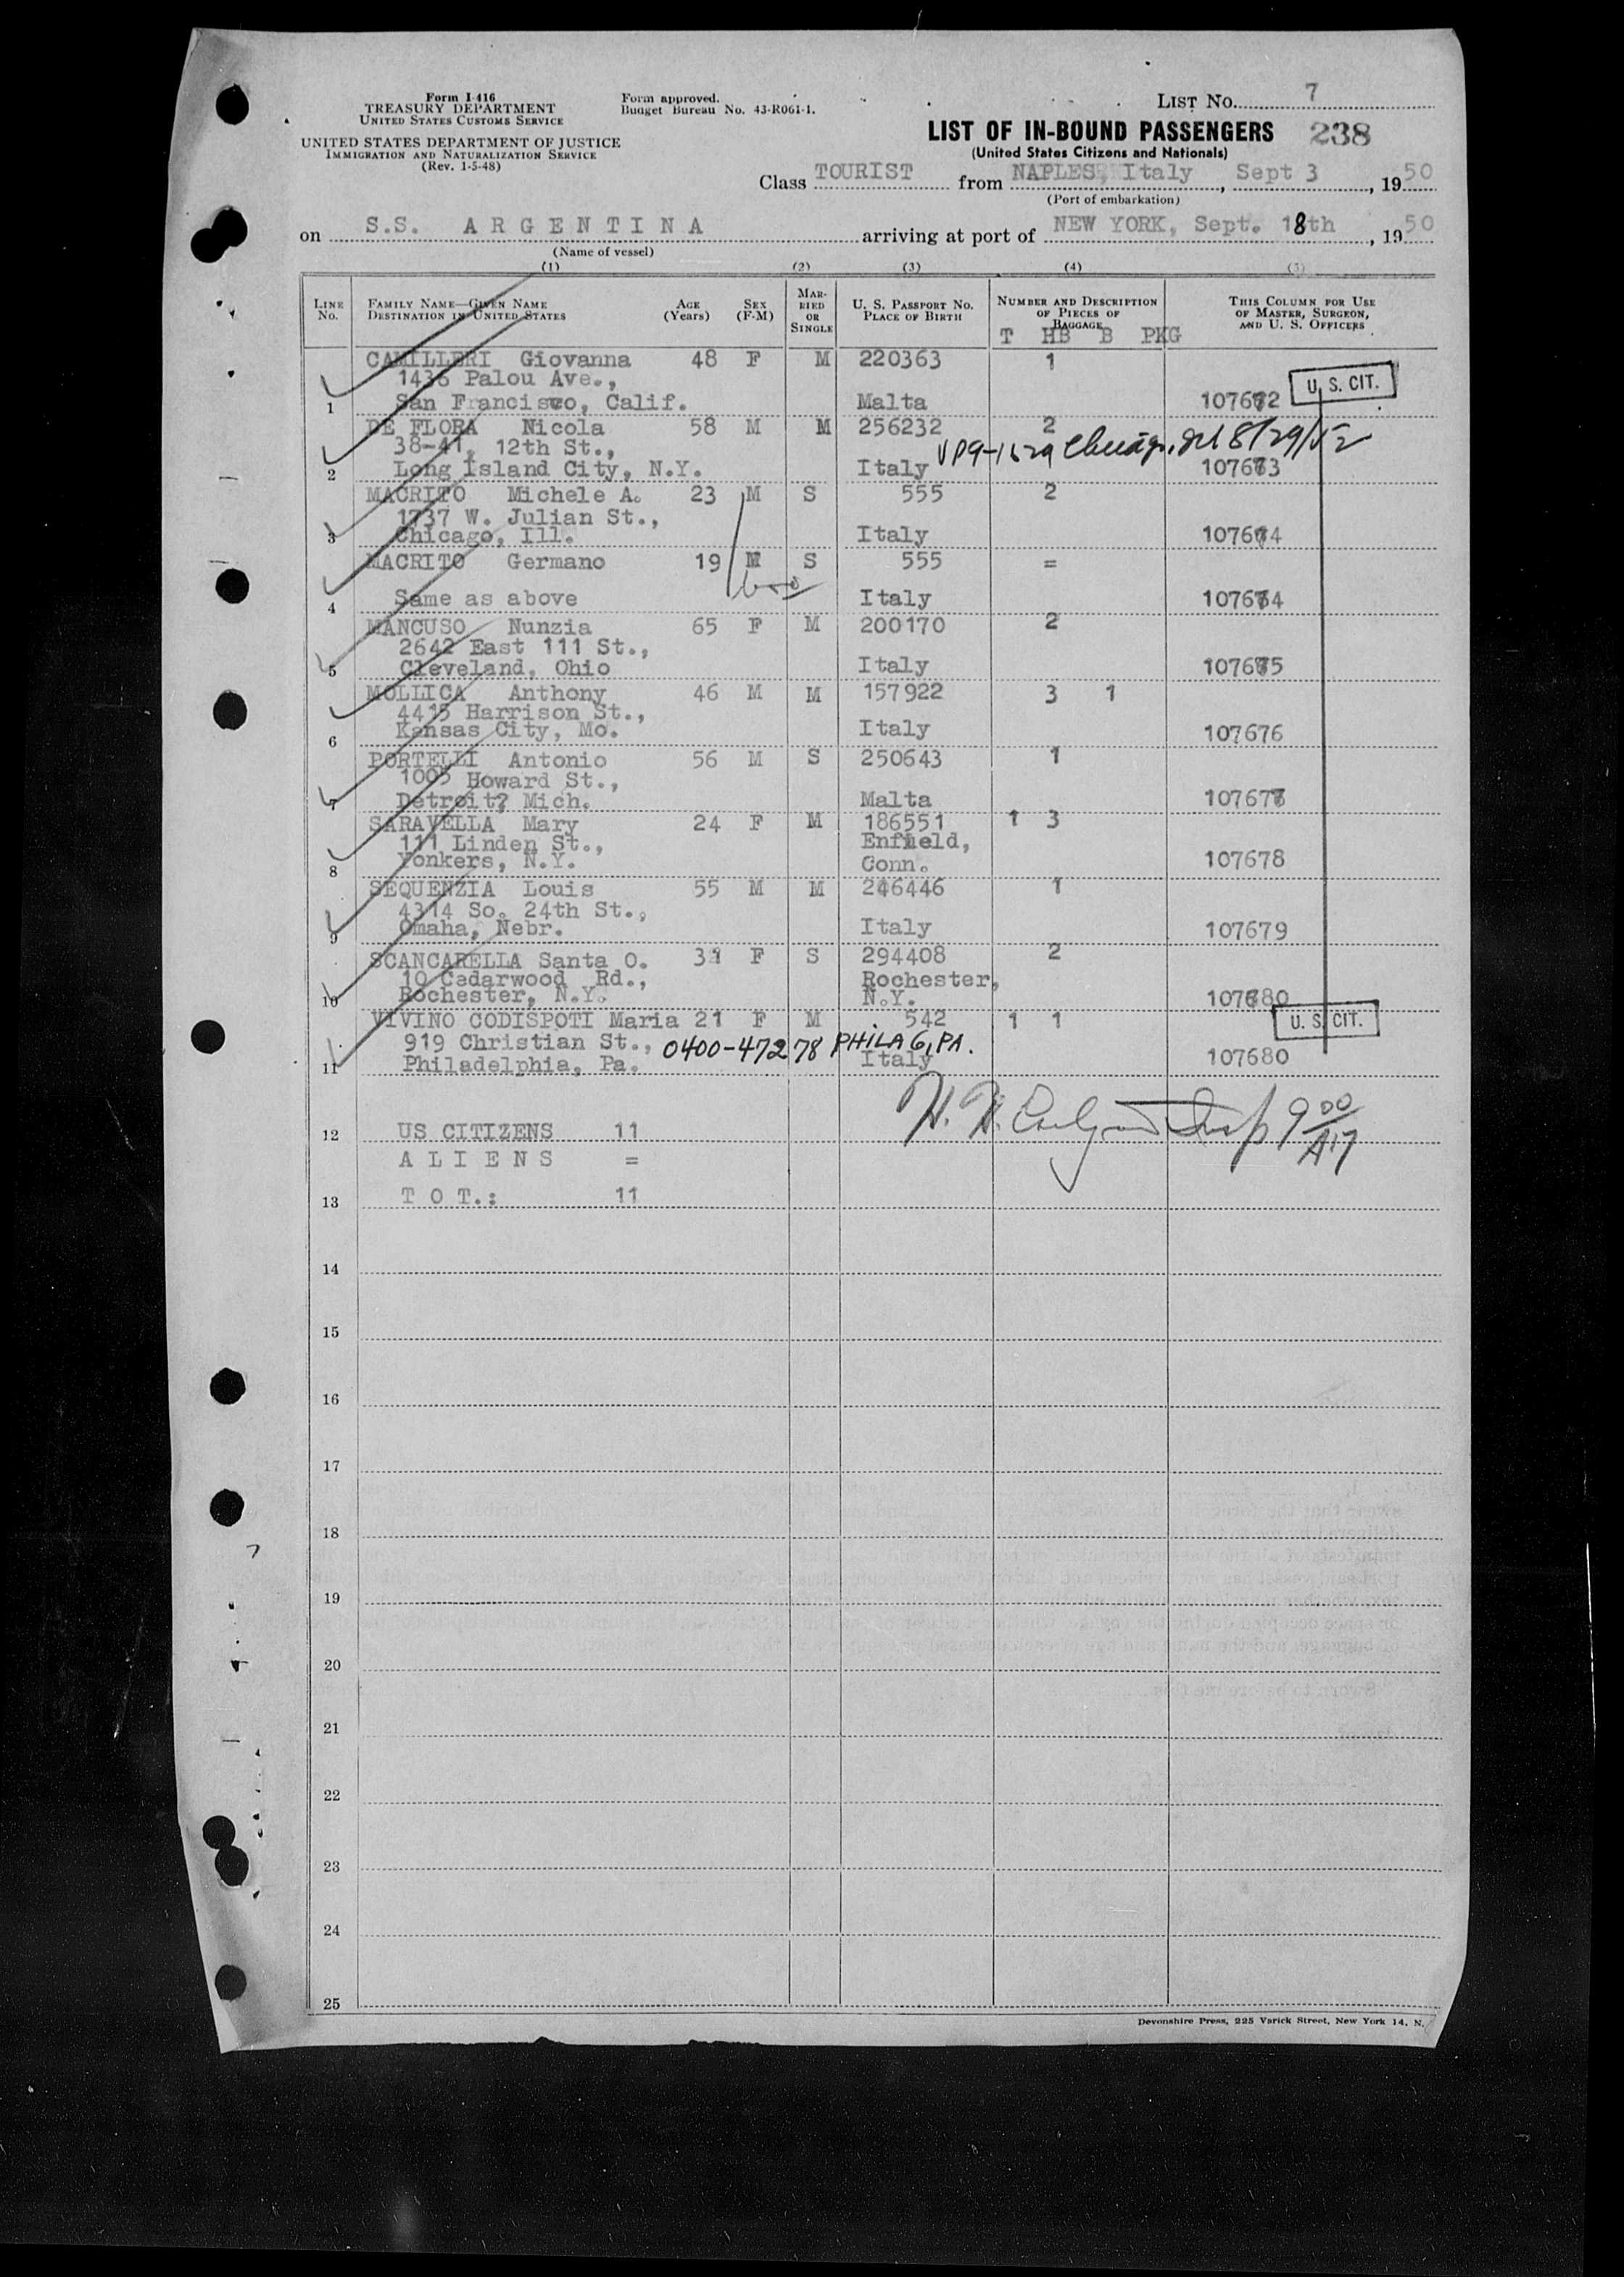 Form I-416
TREASURY DEPARTMENT
UNITED STATES CUSTOMS SERVICE
UNITED STATES DEPARTMENT OF JUSTICE
IMMIGRATION AND NATURALIZATION SERVICE
(Rev. 1-5-48)
Form approved.
Budget Bureau No. 43-R061-1.
LIST NO. 7
LIST OF IN-BOUND PASSENGERS 238
(United States Citizens and Nationals)
Class TOURIST from NAPLES, Italy, Sept 3, 1950
(Port of embarkation)
on S.S. ARGENTINA arriving at port of NEW YORK, Sept. 18th, 1950
(Name of vessel)
(1) (2) (3) (4) (5)
LINE NO. FAMILY NAME—GIVEN NAME DESTINATION IN UNITED STATES AGE (Years) SEX (F-M) MARRIED OR SINGLE U. S. PASSPORT NO. PLACE OF BIRTH NUMBER AND DESCRIPTION OF PIECES OF BAGGAGE THIS COLUMN FOR USE OF MASTER, SURGEON, AND U. S. OFFICERS
T HB B PKG
CAMILLERI Giovanna 48 F M 220363 1
1436 Palou Ave., U. S. CIT.
1 San Francisco, Calif. Malta 107672
DE FLORA Nicola 58 M M 256232 2
38-41, 12th St., 8/29/52
2 Long Island City, N.Y. Italy 107673
MACRITO Michele A. 23 M S 555 2
1737 W. Julian St.,
3 Chicago, Ill. Italy 107674
MACRITO Germano 19 M S 555 =
4 Same as above Italy 107674
MANCUSO Nunzia 65 F M 200170 2
2642 East 111 St.,
5 Cleveland, Ohio Italy 107675
MOLLICA Anthony 46 M M 157922 3 1
4415 Harrison St.,
6 Kansas City, Mo. Italy 107676
PORTELLI Antonio 56 M S 250643 1
1005 Howard St.,
7 Detroit? Mich. Malta 107677
SARAVELLA Mary 24 F M 186551 1 3
111 Linden St., Enfield,
8 Yonkers, N.Y. Conn. 107678
SEQUENZIA Louis 55 M M 246446 1
4314 So. 24th St.,
9 Omaha, Nebr. Italy 107679
SCANCARELLA Santa O. 31 F S 294408 2
10 Cedarwood Rd., Rochester,
10 Rochester, N.Y. N.Y. 107680
VIVINO CODISPOTI Maria 21 F M 542 1 1 U. S. CIT.
919 Christian St., 0400-47278 PHILA 6, PA.
11 Philadelphia, Pa. Italy 107680
12 US CITIZENS 11
ALIENS =
13 TOT.: 11
14
15
16
17
18
19
20
21
22
23
24
25
Devonshire Press, 225 Varick Street, New York 14, N.